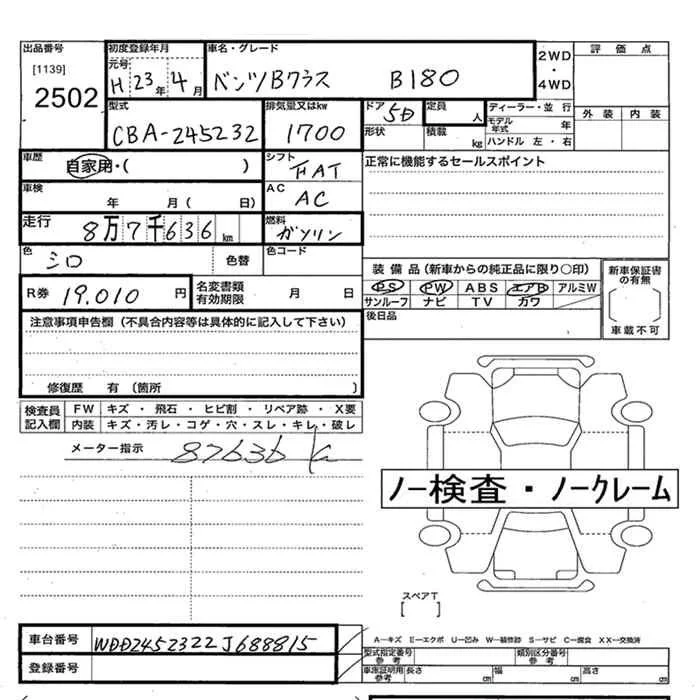 出品番号 初度登録年月 車名・グレード 2WD 評価点
[1139] 元号 ・
2502 H 23年 4月 ベンツBクラス B180 4WD
型式 排気量又はkw ドア 5D 定員 人 ディーラー・並行 外装 内装
CBA-245232 1700 形状 積載 kg モデル年式 年
ハンドル 左・右
車歴 自家用・( ) シフト FAT 正常に機能するセールスポイント
車検 年 月( 日) AC AC
走行 8万7千636km 燃料 ガソリン
色 シロ 色替 色コード
R券 19,010 円 名変書類有効期限 月 日
装備品(新車からの純正品に限り○印) 新車保証書の有無
PS PW ABS エアB アルミW
サンルーフ ナビ TV カワ
後日品 車載不可
注意事項申告欄(不具合内容等は具体的に記入して下さい)
修復歴 有〔箇所 〕
検査員記入欄 FW キズ・飛石・ヒビ割・リペア跡・X要
内装 キズ・汚レ・コゲ・穴・スレ・キレ・破レ
メーター指示 87636 K
ノー検査・ノークレーム
スペアT
[ ]
車台番号 WDD2452322J688815
A-キズ E-エクボ U-凹み W-補修跡 S-サビ C-腐食 XX-交換済
登録番号
型式指定番号 参考 類別区分番号 参考
車庫証明用 参考 長さ cm 幅 cm 高さ cm